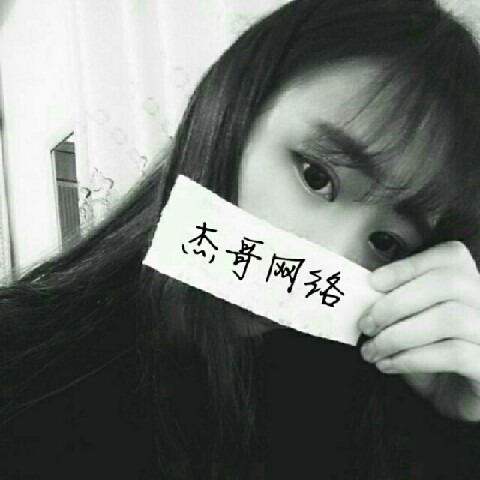 杰哥网络